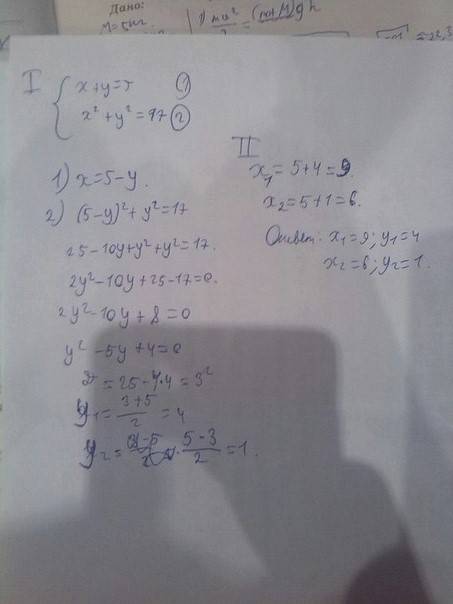 Дано:
M=5кг
I
x+y=5 ①
x²+y²=17 ②
1) x=5-y.
2) (5-y)²+y²=17
25-10y+y²+y²=17.
2y²-10y+25-17=0.
2y²-10y+8=0
y²-5y+4=0
D=25-4·4=3²
y₁=3+5/2=4
y₂=5-3/2=1.
II
x₁=5+4=9.
x₂=5+1=6.
Ответ: x₁=9; y₁=4
x₂=6; y₂=1.